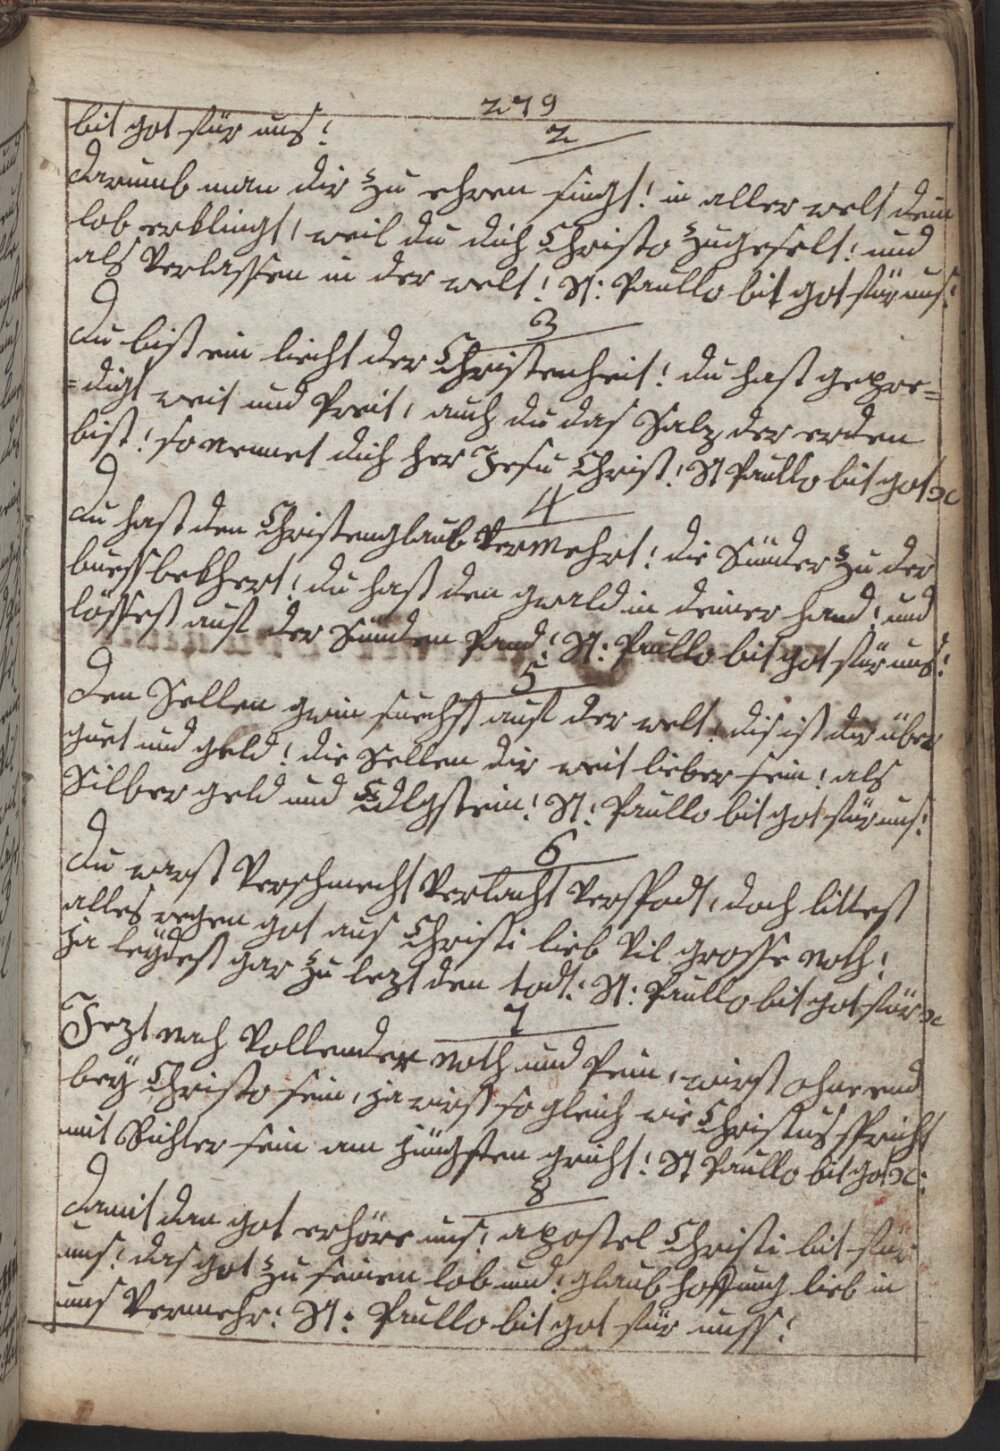 279
bit got für uns!
2
darumb man dir zu ehren singt! in aller welt dein
lob erklingt, weil du dich Christo zugeselt! und
als Verlassen in der welt! St: Paullo bit got für uns!
3
du bist ein liecht der Christenheit! du hast gepre=
=digt weit und Preit, auch du das Salz der erden
bist! so nennet dich her Jesu Christ! St Paullo bit got ꝛc
4
du hast den Christenglaub Vermehrt! die Sünder zu der
buess bekhert! du hast den gwald in deiner hand! und
lössest auf der Sünden Pand! St: Paullo bit got für uns!
5
den Sellen gwin suechst auf der welt! dis ist dir über
guet und geld! die Sellen dir weit lieber sein! als
Silber geld und Edlgstein! St: Paullo bit got für uns!
6
du warst Verschmecht Verlacht Verspodt, doch littest
alles wegen got aus Christi lieb Vil grosse noth!
ja leÿdest gar zu lezt den todt! St: Paullo bit got für ꝛc
7
Jezt nach Vollender noth und Pein, wirst ohne end
beÿ Christo sein, ja wirst so gleich wie Christus spricht
mit Richter sein am jüngsten gricht! St Paullo bit got ꝛc:
8
damit dan got erhöre uns! apostel Christi bit für
uns! das got zu seinen lob und! glaub hoffnung lieb in
uns Vermehr! St: Paullo bit got für unss!